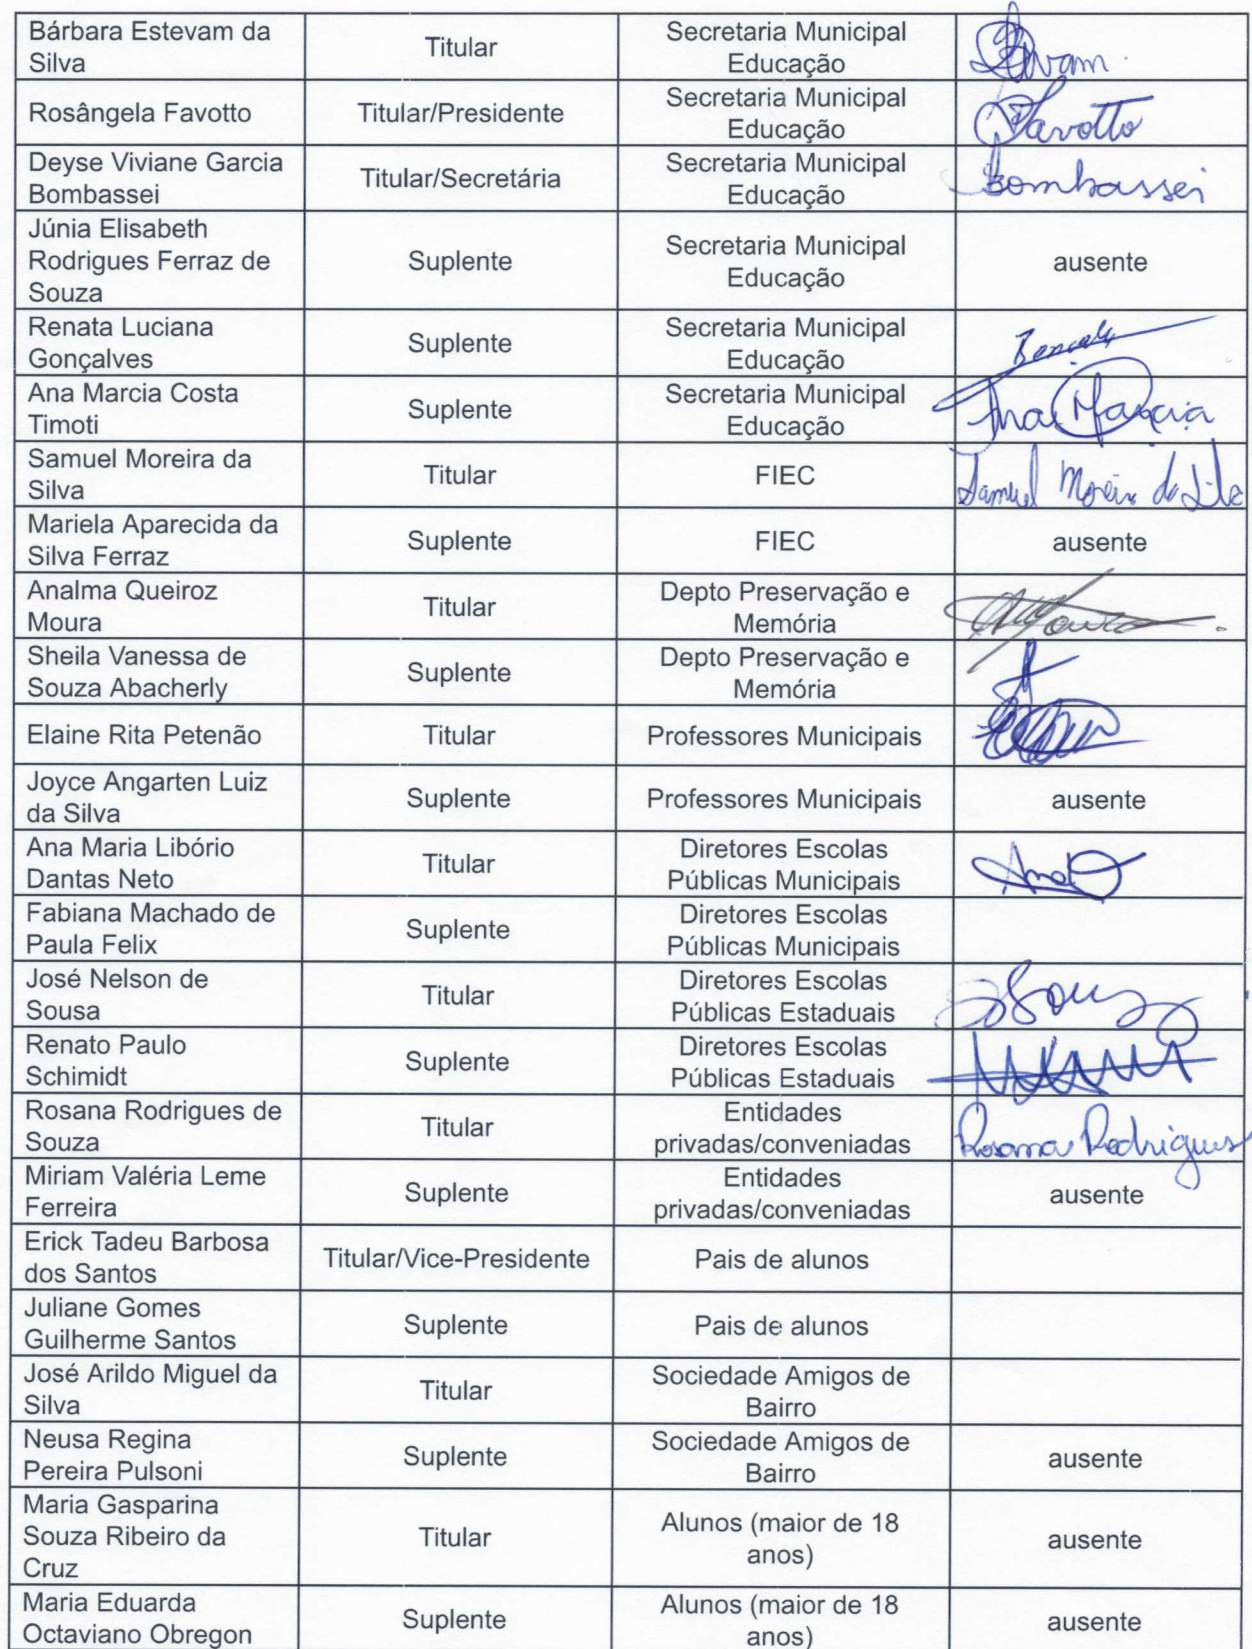 Bárbara Estevam da
Silva
Titular
Secretaria Municipal
Educação
Rosângela Favotto
Titular/Presidente
Secretaria Municipal
Educação
Favotto
Deyse Viviane Garcia
Bombassei
Titular/Secretária
Secretaria Municipal
Educação
Bombassei
Júnia Elisabeth
Rodrigues Ferraz de
Souza
Suplente
Secretaria Municipal
Educação
ausente
Renata Luciana
Gonçalves
Suplente
Secretaria Municipal
Educação
Ana Marcia Costa
Timoti
Suplente
Secretaria Municipal
Educação
Ana Marcia
Samuel Moreira da
Silva
Titular
FIEC
Samuel Moreira da Silva
Mariela Aparecida da
Silva Ferraz
Suplente
FIEC
ausente
Analma Queiroz
Moura
Titular
Depto Preservação e
Memória
Sheila Vanessa de
Souza Abacherly
Suplente
Depto Preservação e
Memória
Elaine Rita Petenão
Titular
Professores Municipais
Joyce Angarten Luiz
da Silva
Suplente
Professores Municipais
ausente
Ana Maria Libório
Dantas Neto
Titular
Diretores Escolas
Públicas Municipais
Ana
Fabiana Machado de
Paula Felix
Suplente
Diretores Escolas
Públicas Municipais
José Nelson de
Sousa
Titular
Diretores Escolas
Públicas Estaduais
Renato Paulo
Schimidt
Suplente
Diretores Escolas
Públicas Estaduais
Rosana Rodrigues de
Souza
Titular
Entidades
privadas/conveniadas
Rosana Rodrigues
Miriam Valéria Leme
Ferreira
Suplente
Entidades
privadas/conveniadas
ausente
Erick Tadeu Barbosa
dos Santos
Titular/Vice-Presidente
Pais de alunos
Juliane Gomes
Guilherme Santos
Suplente
Pais de alunos
José Arildo Miguel da
Silva
Titular
Sociedade Amigos de
Bairro
Neusa Regina
Pereira Pulsoni
Suplente
Sociedade Amigos de
Bairro
ausente
Maria Gasparina
Souza Ribeiro da
Cruz
Titular
Alunos (maior de 18
anos)
ausente
Maria Eduarda
Octaviano Obregon
Suplente
Alunos (maior de 18
anos)
ausente